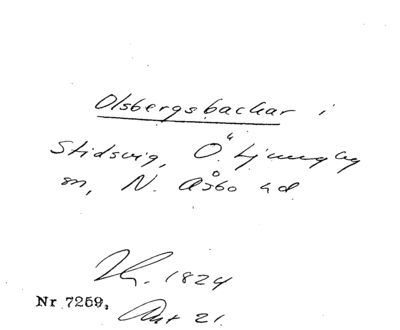 Olsbergsbackar i
Stidsvig, Ö. Ljungby
sn, N. Åsbo hd
1824
Nr 7259.
Akt 21.